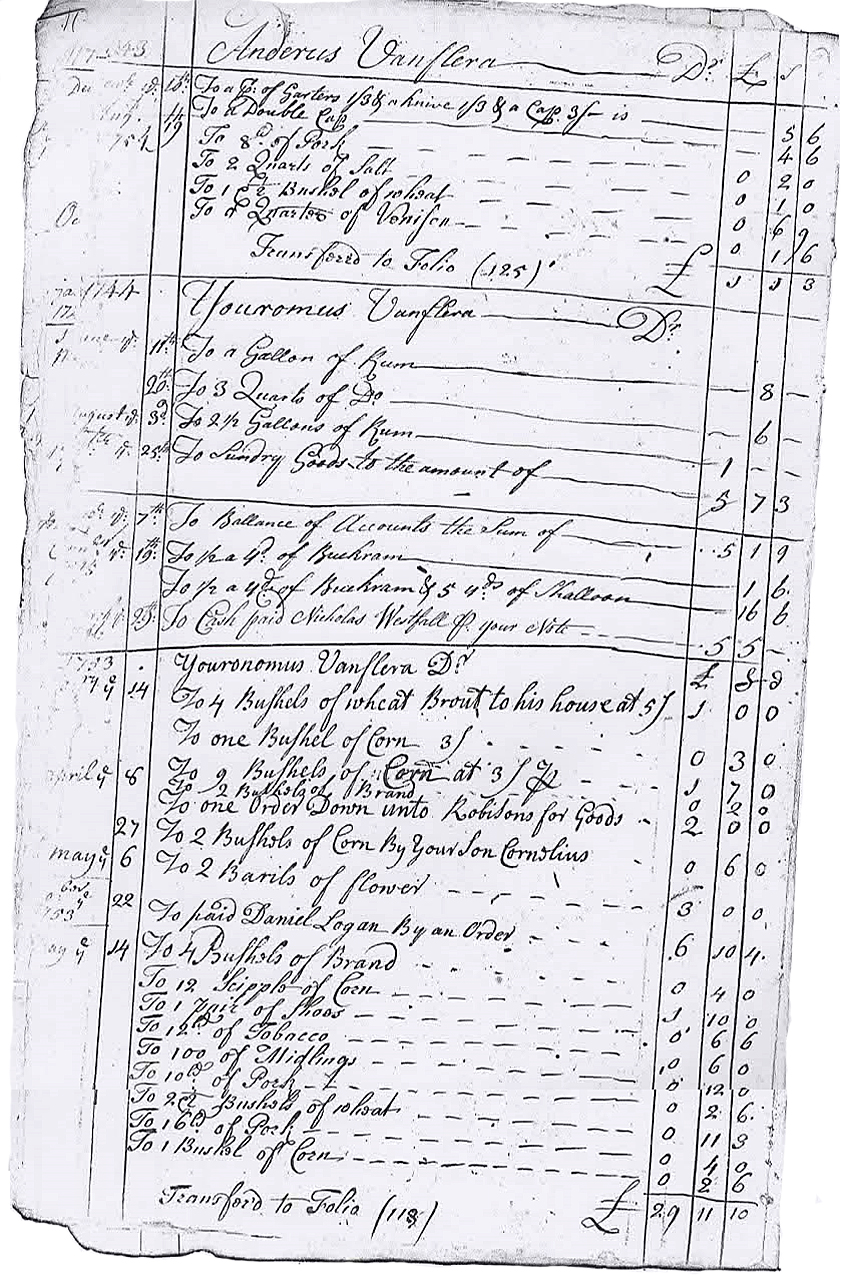 Anderus Vanflera Dr £ s
18th To a p. of Garters 1/3 & a knive 1/3 & a Cap 3/- is 5 6
14 To a Double Cap 4 6
19 To 8d of Pork 0 2 0
To 2 Quarts of Salt 0 1 0
To 1 & 1/2 Bushel of wheat 0 6 9
To a Quarter of Venison 0 1 6
Transferd to Folio (125) £ 1 1 3
1744 Youromus Vanflera Dr
11th To a Gallon of Rum 8 -
20th To 3 Quarts of Do 6 -
August ye 3d To 2 1/2 Gallons of Rum 1 - -
25th To Sundry Goods to the amount of 5 7 3
7th To Ballance of Accounts the Sum of 5 1 9
19th To 1/2 a yd of Buckram 1 6
To 1/2 a yd of Buckram & 5 yds of Shalloon 16 6
To Cash paid Nicholas Westfall p. your Note 5 5 -
1753 Youronomus Vanflera Dr £ s d
ye 14 To 4 Bushels of wheat Brout to his house at 5/ 1 0 0
To one Bushel of Corn 3/ 0 3 0
April ye 8 To 9 Bushels of Corn at 3/ p 1 7 0
To 2 Bushels of Brand 0 2 0
To one Order Down unto Robisons for Goods 2 0 0
27 To 2 Bushels of Corn By Your Son Cornelius 0 6 0
may ye 6 To 2 Barils of flower 3 0 0
22 To paid Daniel Logan By an Order 6 10 4
ye 14 To 4 Bushels of Brand 0 4 0
To 12 Scipple of Corn 1 10 0
To 1 pair of Shoos 0 6 6
To 12d of Tobacco 0 6 0
To 100 of Midlings 0 12 0
To 10d of Pork 0 2 6
To 2 & 1/2 Bushels of wheat 0 11 3
To 16d of Pork 0 4 0
To 1 Bushel of Corn 0 2 6
Transferd to Folio (118) £ 29 11 10